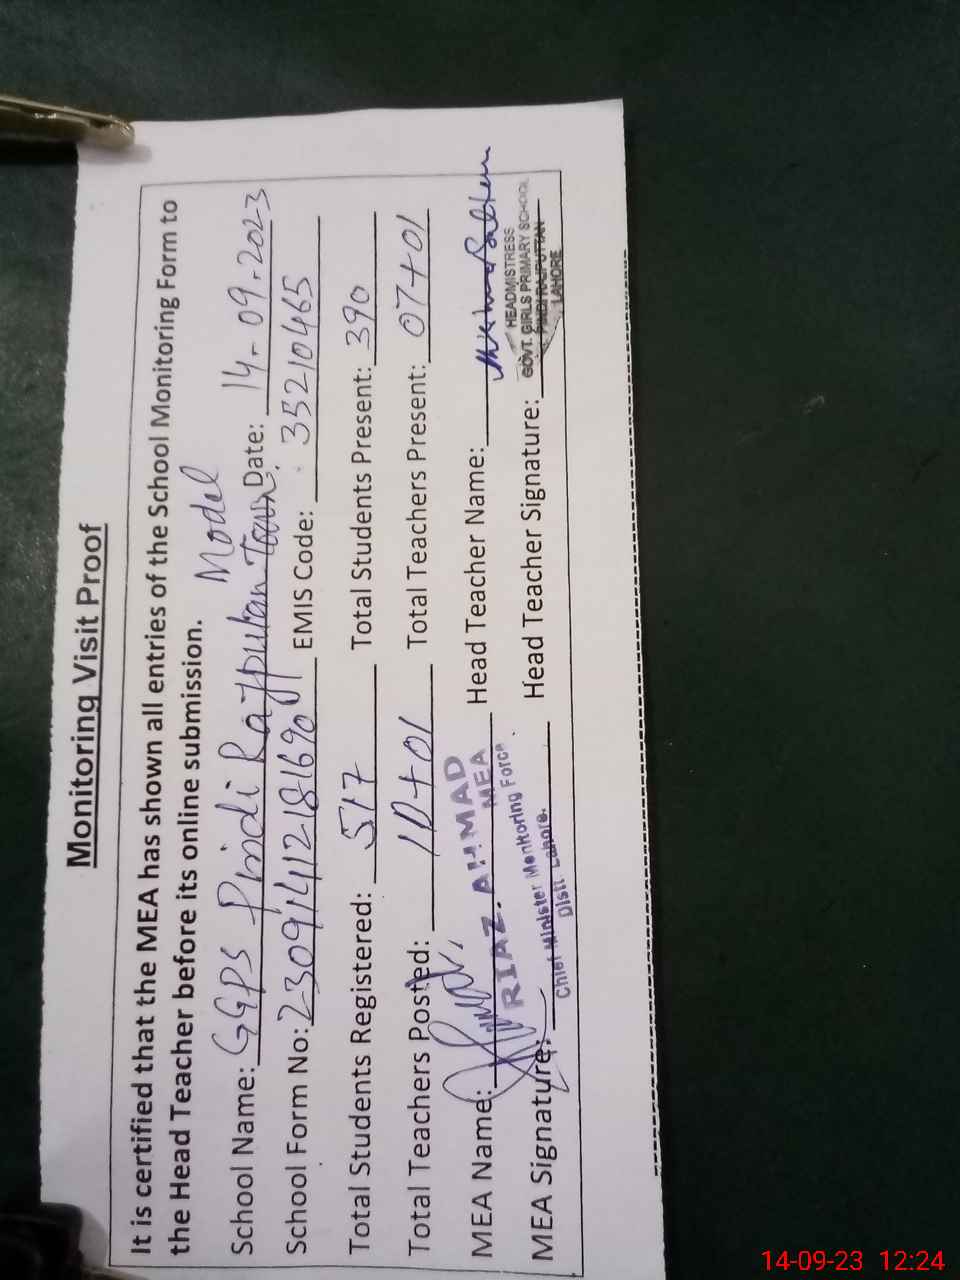 Monitoring Visit Proof
It is certified that the MEA has shown all entries of the School Monitoring Form to
the Head Teacher before its online submission.
Model
School Name: GGPS Pindi Rajputan Town. Date: 14-09-2023
School Form No: 2309141121816901 EMIS Code: 35210465
Total Students Registered: 517 Total Students Present: 390
Total Teachers Posted: 10+01 Total Teachers Present: 07+01
MEA Name: Head Teacher Name:
RIAZ AHMAD
MEA
HEADMISTRESS
GOVT. GIRLS PRIMARY SCHOOL
PINDI RAJPUTTAN
LAHORE
MEA Signature: Head Teacher Signature:
Chief Minister Monitoring Force
Distt. Lahore.
14-09-23 12:24